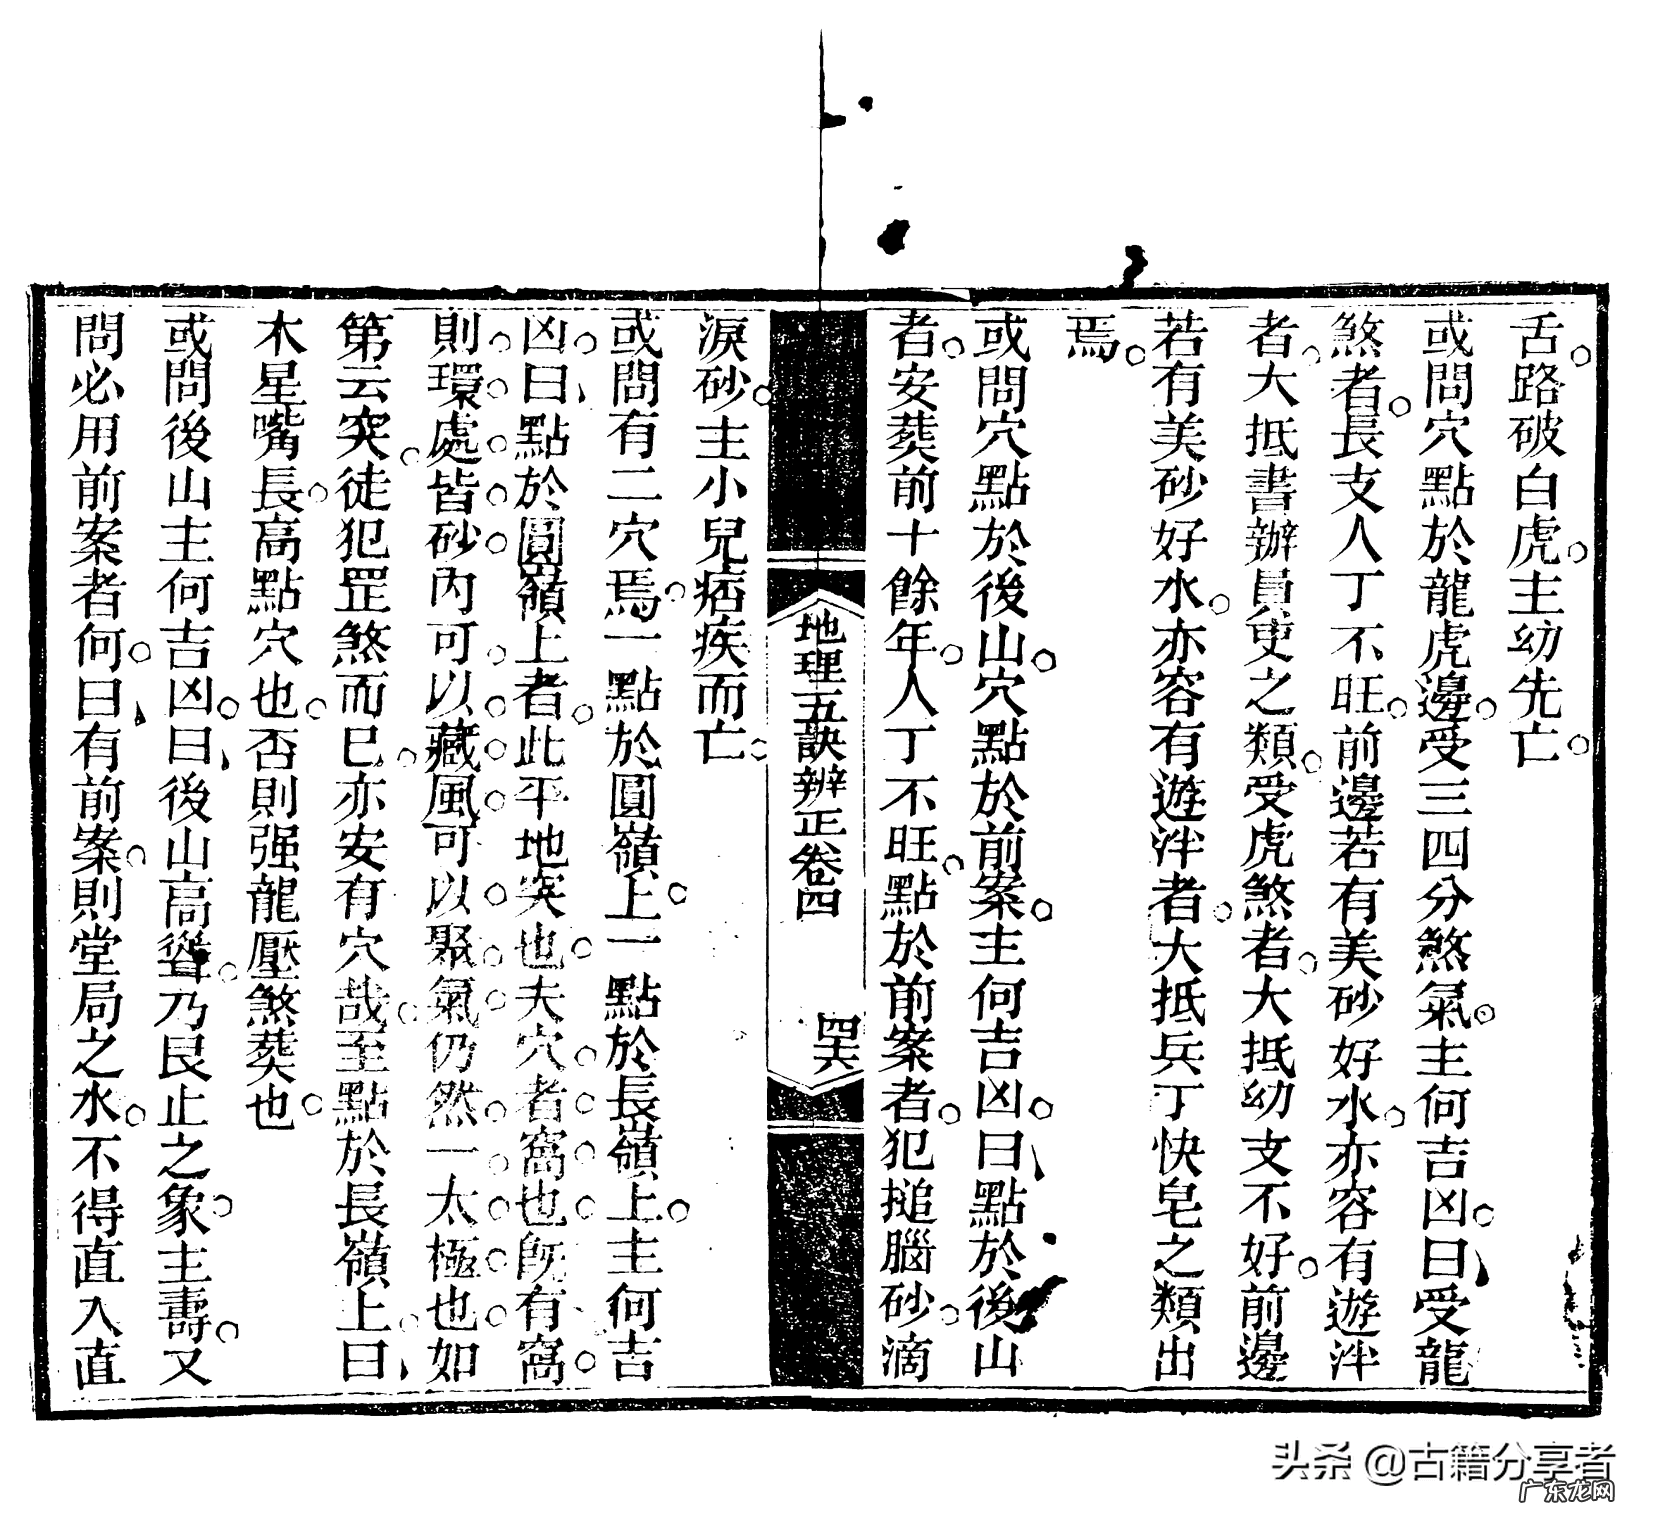 舌路破白虎主幼先亡
或問穴點於龍虎邊受三四分煞氣主何吉凶曰受龍
煞者長支人丁不旺前邊若有美砂好水亦容有遊泮
者大抵書辦員吏之類受虎煞者大抵幼支不好前邊
若有美砂好水亦容有遊泮者大抵兵丁快皂之類出
焉
或問穴點於後山穴點於前案主何吉凶曰點於後山
者安葬前十餘年人丁不旺點於前案者犯搥腦砂滴
地理五訣辨正卷四
四六
淚砂主小兒痞疾而亡
或問有二穴焉一點於圓嶺上一點於長嶺上主何吉
凶曰點於圓嶺上者此平地突也夫穴者窩也既有窩
則環處皆砂內可以藏風可以聚氣仍然一太極也如
第云突徒犯罡煞而已亦安有穴哉至點於長嶺上曰
木星嘴長高點穴也否則强龍壓煞葬也
或問後山主何吉凶曰後山高聳乃艮止之象主壽又
問必用前案者何曰有前案則堂局之水不得直入直
头条 @古籍分享者
广东龙网